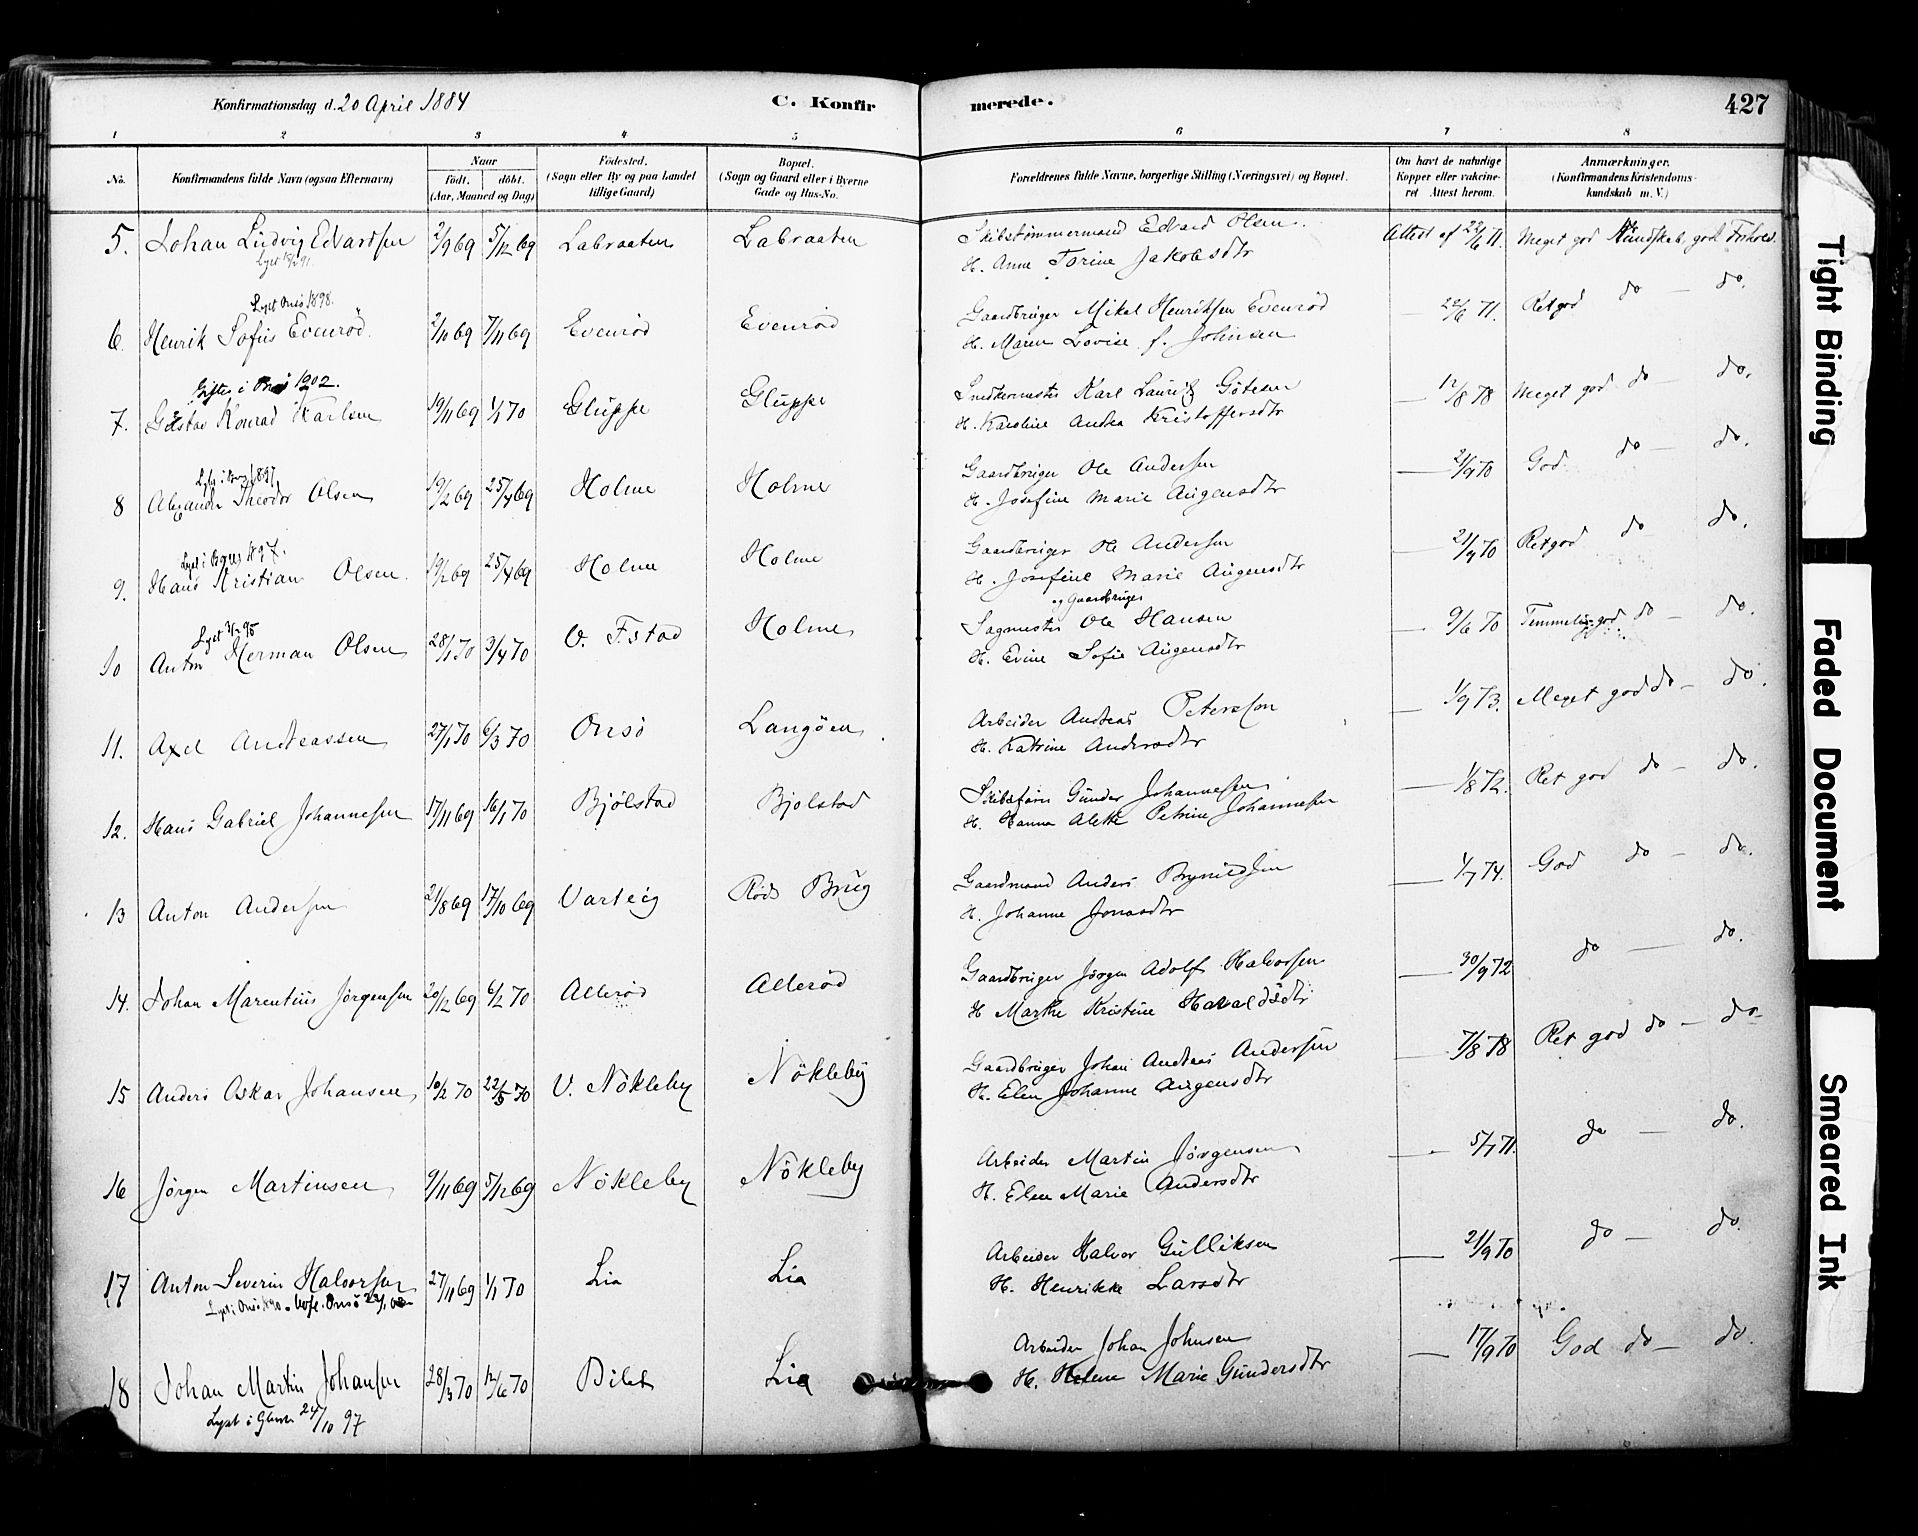 Konfirmationsdag d. 20 April 1884
C. Konfir
merede.
427
1 2 3 4 5 6 7 8
No.
Konfirmandens fulde Navn (ogsaa Efternavn)
Naar
født. døbt.
(Aar, Maaned og Dag)
Födested.
(Sogn eller By og paa Landet
tillige Gaard)
Bopæl.
(Sogn og Gaard eller i Byerne
Gade og Hus-No.
Forældrenes fulde Navne, borgerlige Stilling (Næringsvei) og Bopæl.
Om havt de naturlige
Kopper eller vakcine-
ret Attest herom.
Anmærkninger.
(Konfirmandens Kristendoms-
kundskab m. V.)
5. Johan Ludvig Edvardsen 2/9 69 5/12 69 Labraaten Labraaten Skibstømmermand Edvard Olsen. Attest af 22/6 71. Meget god Kundskab, god Forhold.
H. Anne Torine Jakobsdtr
Lyst Onsö 1898.
6. Henrik Sofus Evenröd. 2/10 69 7/11 69 Evenröd Evenröd Gaardbruger Mikal Henriksen Evenröd — 22/6 71. Retgod do — do.
H. Maren Lovise f. Johnsen
Giftes i Onsö 1902.
7. Gustav Konrad Karlsen 19/11 69 1/1 70 Gluppe Gluppe Snedkermester Karl Lauritz Götesen — 12/8 78 Meget god do — do.
H. Karoline Andrea Kristoffersdtr
1897
8 Alexander Theodor Olsen 19/2 69 25/4 69 Holme Holme Gaardbruger Ole Andersen — 21/9 70 God do — do.
H. Josefine Marie Augensdtr
Lyst i Borge 1897.
9. Hans Kristian Olsen. 19/2 69 25/4 69 Holme Holme Gaardbruger Ole Andersen — 21/9 70 Retgod do — do.
H. Josefine Marie Augensdtr
og Gaardbruger
Lyst 95
10 Anton Herman Olsen 28/1 70 3/4 70 Holme Sagmester Ole Hansen — 9/6 70 Temmelig god do — do.
H. Evine Sofie Augensdtr
11. Axel Andreassen 27/1 70 6/3 70 Onsö Langöen Arbeider Andreas Peterson — 1/9 73. Meget god do — do.
H. Katrine Andersdtr
12. Hans Gabriel Johannesen 17/11 69 16/1 70 Bjölstad Bjölstad Skibsförer Gunder Johannesen — 1/8 72. Ret god do — do.
H. Hanna Alette Petrine Johannesen
13 Anton Andersen 21/8 69 17/10 69 Varteig Röds Brug Gaardmand Anders Brynildsen — 1/7 74. God do — do.
H. Johanne Jonasdtr
14. Johan Marentius Jörgensen 20/12 69 6/2 70 Alleröd Alleröd Gaardbruger Jörgen Adolf Halvorsen — 30/9 72 do — do.
H Marthe Kristine Haraldsdtr
15 Anders Oskar Johansen 10/2 70 22/5 70 V. Nökleby Nökleby Gaardbruger Johan Andreas Andersen — 7/8 78 Ret god do — do
H. Elen Johanne Augensdtr
16 Jörgen Martinsen 9/11 69 5/12 69 Nökleby Nökleby Arbeider Martin Jörgensen — 5/7 71. do — do.
H. Elen Marie Andersdtr
17 Anton Severin Halvorsen 27/11 69 1/1 70 Lia Lia Arbeider Halvor Gulliksen — 21/9 70 do — do
H. Henrikke Larsdtr
18 Johan Martin Johansen 28/3 70 12/6 70 Bilet Lia Arbeider Johan Johnsen — 17/9 70 God do — do.
H. Helene Marie Gundersdtr
Lyst i 24/10 97
Tight Binding
Faded Document
Smeared Ink